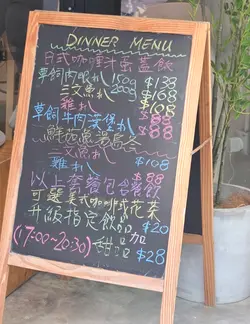 DINNER MENU
日式咖喱汁蛋蓋飯
草飼肉眼扒 150g $138
200g $168
三文魚扒 $108
雞扒 $88
草飼牛肉漢堡扒 $88
三文魚扒 $108
雞扒 $88
以上套餐包含餐飲
可選美式咖啡或花茶
升級指定飲品加 $20
(17:00~20:30) 甜品 $28